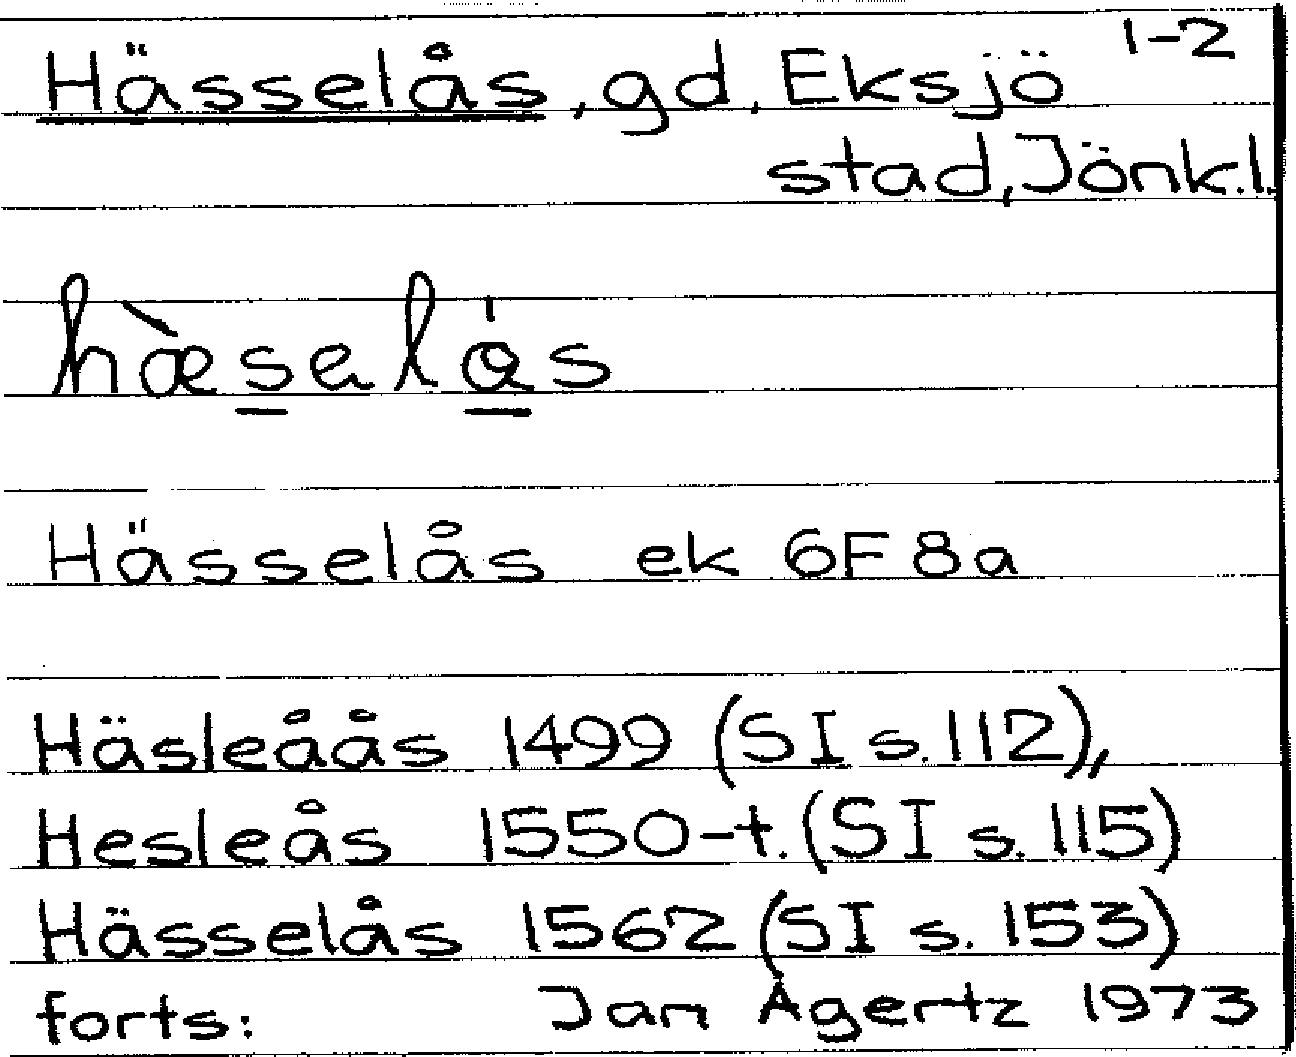 Hässelås, gd, Eksjö 1-2
stad, Jönk.l.
hæ̀selås
Hässelås ek 6F8a
Häsleåås 1499 (SI s.112),
Hesleås 1550-t. (SI s. 115)
Hässelås 1562 (SI s. 153)
forts: Jan Agertz 1973